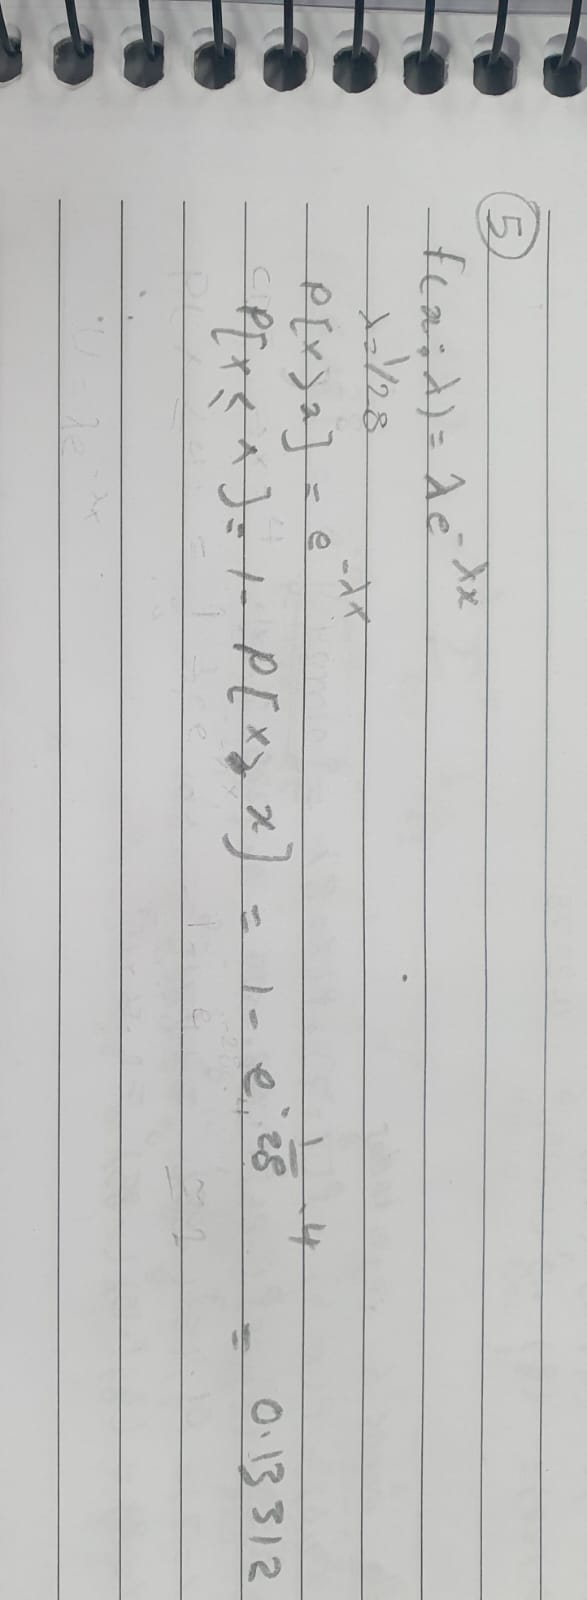 5
f(x; λ) = λe^-λx
λ = 1/28
P[X > x] = e^-λx
P[X ≤ x] = 1 - P[X > x] = 1 - e^-1/28 . 4 = 0.13312